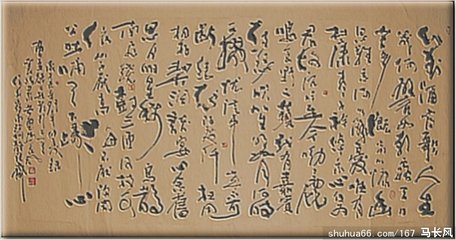 对酒当歌人生
几何譬如朝露去日
苦多慨当以慷忧
思难忘何以解忧唯有
杜康青青子衿悠悠我心但为
君故沉吟至今呦呦鹿
鸣食野之苹我有嘉宾
鼓瑟吹笙明明如月何时
可掇忧从中来不可
断绝越陌度阡枉用
相存契阔谈宴心念旧
恩月明星稀乌鹊
南飞绕树三匝何枝可
依山不厌高海不厌深周
公吐哺天下归心
shuhua66.com/167 马长风